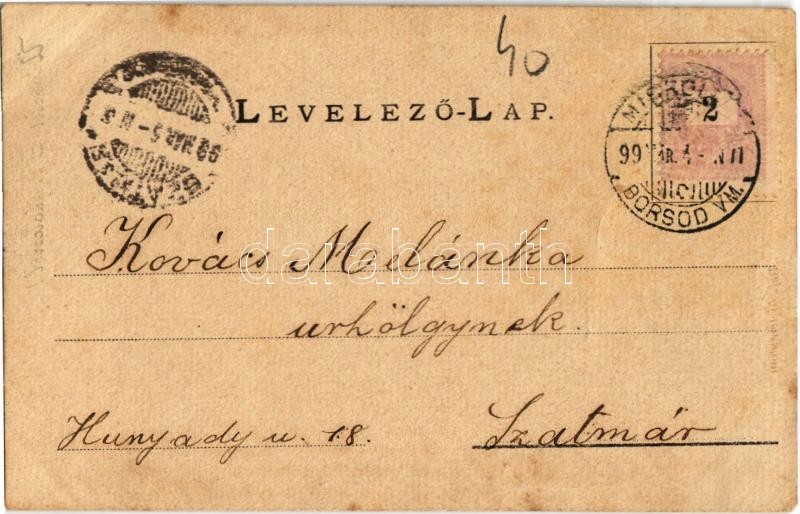 40
LEVELEZŐ-LAP.
2
MISKOLCZ
99 MÁR. 4
BORSOD VM.
99 MÁR 5
Kovács Melánka
urhölgynek.
Hunyady u. 18. Szatmár
darabanth